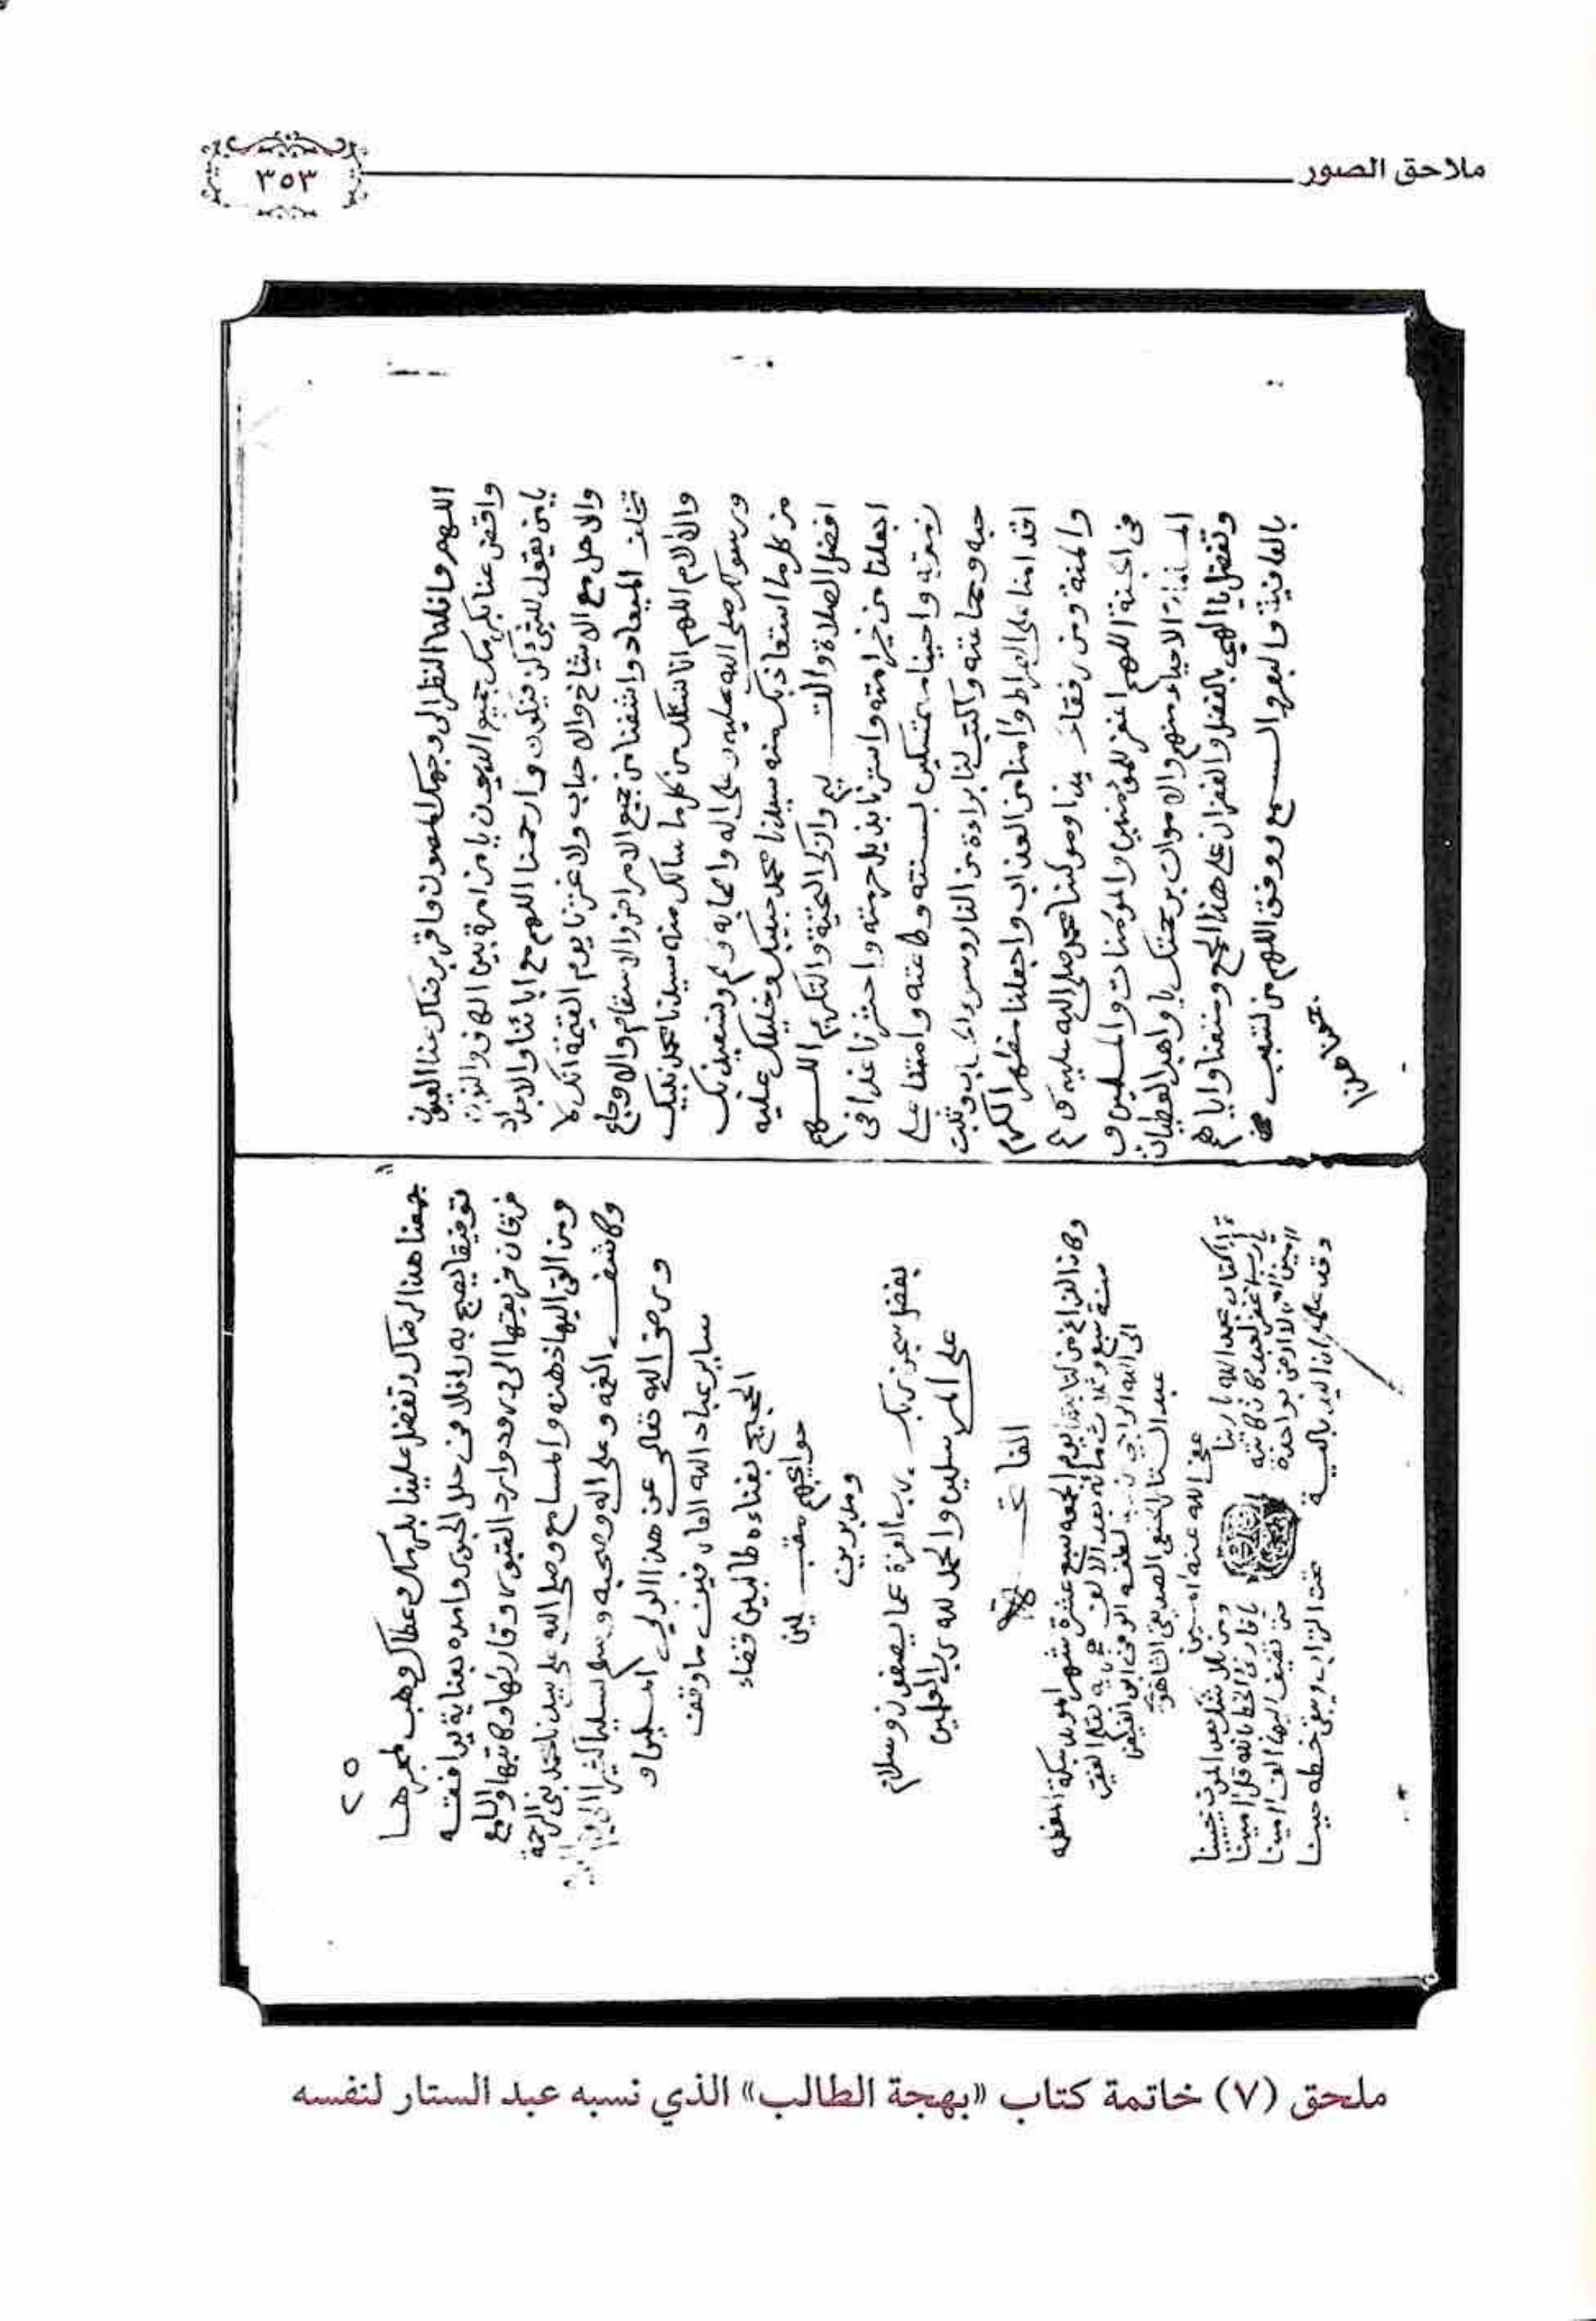 ملاحق الصور
٣٥٣
اللهم ومانلنا النظر الى وجهك المصون فاقر برضاك عنا العيون
واقض عنا بكرمك جميع الديون يا من امره بين الكاف والنون
يا من يقول للشئ كن فيكون وارحمنا اللهم مع ابائنا والاجداد
والاهل مع الاشياخ والاحباب ولا تخزنا يوم القيمة انك لا
تخلف الميعاد واشفنا من جميع الامراض والاسقام والاوجاع
والآلام اللهم انا نسئلك من كل ما سالك منه سيدنا محمد نبيك
ورسولك صلى الله عليه وعلى اله واصحابه وسلم ونستعيذ بك
من كل ما استعاذ بك منه سيدنا محمد حبيبك وخليلك عليه
افضل الصلاة والتسليم وازكى التحية والتكريم اللهم
اجعلنا من خير امته واسترنا بذيل حرمته واحشرنا غدا في
زمرته واحينا متمسكين بسنته وطاعته وامتنا على
حبه وجماعته واكتب لنا براءة من النار وسوء الحساب وثبت
اقدامنا على الصراط وآمنا من العذاب واجعلنا مظهر الكرم
والمنة ومن رفقاء سيدنا ومولينا محمد صلى الله عليه وسلم
في الجنة اللهم اغفر للمؤمنين والمؤمنات والمسلمين و
المسلمات الاحياء منهم والاموات برحمتك يا واهب العطيات
وتفضل يا الهي بالفضل والغفران على هذا الجمع ومتعنا واياهم
بالعافية والبصر والسمع ووفق اللهم من تسبب في
جمعنا هذا
٢٥
جمعنا هذا لرضاك وتفضل علينا بكرمك وعطاك وهب لمحبرها
توفيقا يصح به رافلا في حلل الحبور وامده بعناية يرافقه
فرقان فريقها الى ورود وارد القبور وقارئها وكاتبها والسامع
ومن القى اليها ذهنه والمسامع وصلى الله على سيدنا محمد نبي الرحمة
وكاشف الغمة وعلى اله وصحبه وسلم تسليما كثيرا الى يوم الدين
ورضي الله تعالى عن هذا الولي المسلمين و
ساير عباد الله العارفين ما وقف
الحجيج بفناءه طالبين قضاء
حوايجهم مقبلين
ومدبرين
بفضل سبحن ربك رب العزة عما يصفون وسلام
على المرسلين والحمد لله رب العلمين
الفاتحة
وكان الفراغ من كتابته يوم الجمعه سبع عشرة شهر المولد بمكة المعظمه
سنة سبع وثلاث مائة بعد الالف هجرية بقلم الفقير
الى الله الراجي لطفه الوفي ابي الفيض
عبد الستار الحنفي الصديقي
عفى الله عنه امين
تم الكتاب بحمد الله بارينا
يا رب اغفر لعبد كان كاتبه يا قارئ الخط بالله قل امينا
امين امين لا ارضى بواحدة حتى تضيف اليها الف امينا
تحت التراب ويبقى خطه حينا
ملحق (٧) خاتمة كتاب «بهجة الطالب» الذي نسبه عبد الستار لنفسه